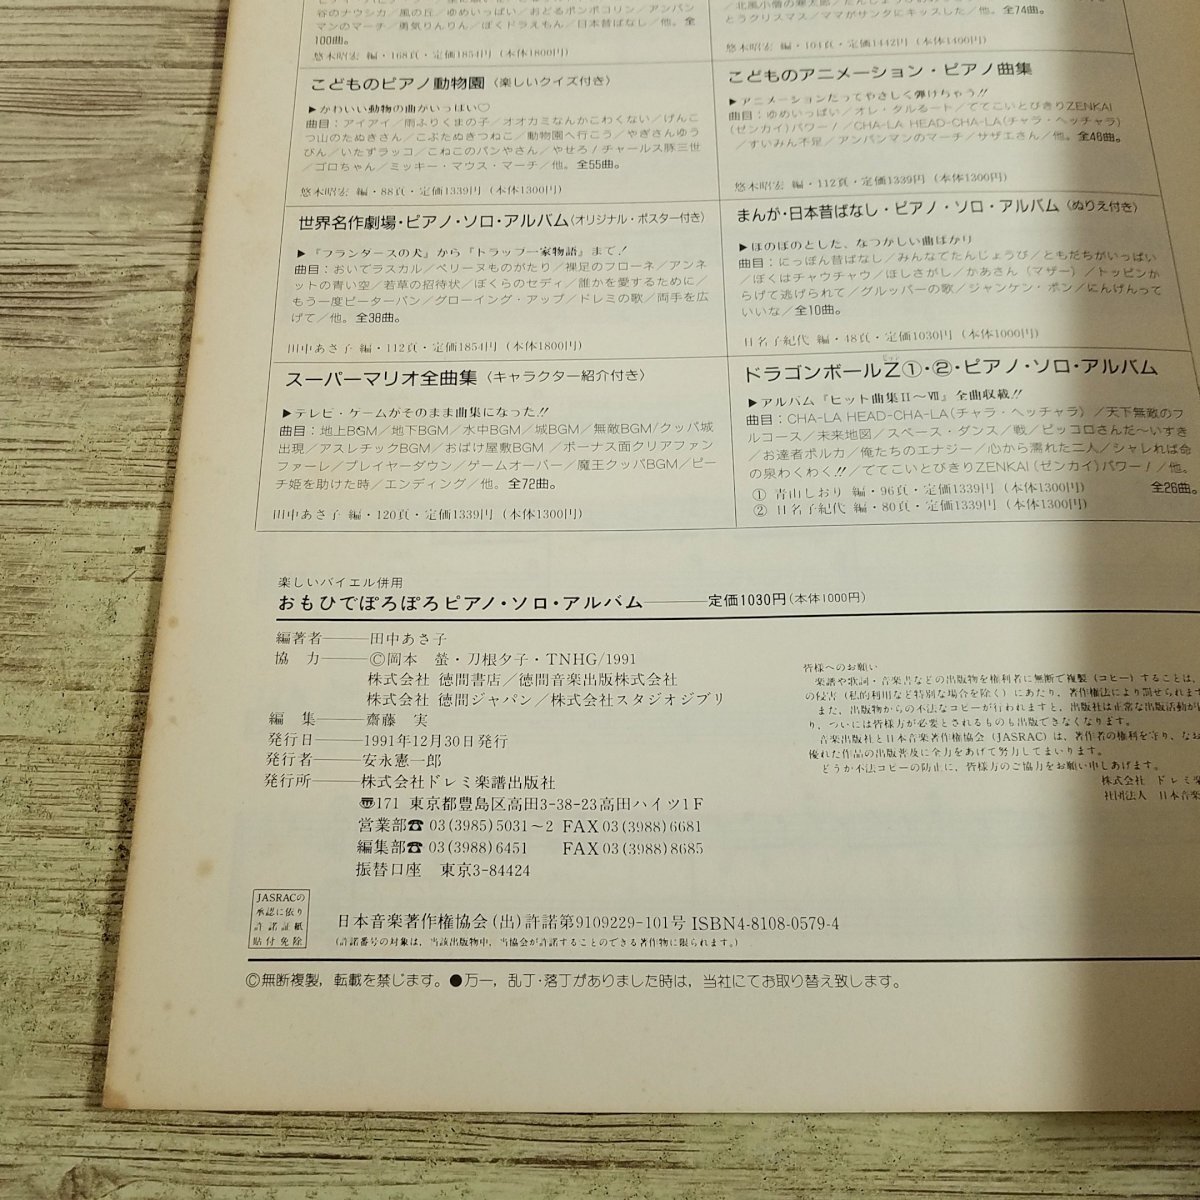 谷のナウシカ／風の丘／ゆめいっぱい／おどるポンポコリン／アンパン
マンのマーチ／勇気りんりん／ぼくドラえもん／日本昔ばなし／他。全
100曲。
悠木昭宏 編・168頁・定価1854円（本体1800円）
北風小僧の寒太郎
とうクリスマス／ママがサンタにキッスした／他。全74曲。
悠木昭宏 編・104頁・定価1442円（本体1400円）
こどものピアノ動物園（楽しいクイズ付き）
▶かわいい動物の曲がいっぱい♡
曲目：アイアイ／雨ふりくまの子／オオカミなんかこわくない／げんこ
つ山のたぬきさん／こぶたぬきつねこ／動物園へ行こう／やぎさんゆう
びん／いたずラッコ／こねこのパンやさん／やせろ！チャールス豚三世
／ゴロちゃん／ミッキー・マウス・マーチ／他。全55曲。
悠木昭宏 編・88頁・定価1339円（本体1300円）
こどものアニメーション・ピアノ曲集
▶アニメーションだってやさしく弾けちゃう!!
曲目：ゆめいっぱい／オレ・タルるート／でてこいとびきりZENKAI
（ゼンカイ）パワー！／CHA-LA HEAD-CHA-LA（チャラ・ヘッチャラ）
／すいみん不足／アンパンマンのマーチ／サザエさん／他。全48曲。
悠木昭宏 編・112頁・定価1339円（本体1300円）
世界名作劇場・ピアノ・ソロ・アルバム（オリジナル・ポスター付き）
▶『フランダースの犬』から『トラップ一家物語』まで！
曲目：おいでラスカル／ペリーヌものがたり／裸足のフローネ／アンネ
ットの青い空／若草の招待状／ぼくらのセディ／誰かを愛するために／
もう一度ピーターパン／グローイング・アップ／ドレミの歌／両手を広
げて／他。全38曲。
田中あさ子 編・112頁・定価1854円（本体1800円）
まんが・日本昔ばなし・ピアノ・ソロ・アルバム（ぬりえ付き）
▶ほのぼのとした、なつかしい曲ばかり
曲目：にっぽん昔ばなし／みんなでたんじょうび／ともだちがいっぱい
／ぼくはチャウチャウ／ほしさがし／かあさん（マザー）／トッピンか
らげて逃げられて／グルッパーの歌／ジャンケン・ポン／にんげんって
いいな／全10曲。
日名子紀代 編・48頁・定価1030円（本体1000円）
スーパーマリオ全曲集（キャラクター紹介付き）
▶テレビ・ゲームがそのまま曲集になった!!
曲目：地上BGM／地下BGM／水中BGM／城BGM／無敵BGM／クッパ城
出現／アスレチックBGM／おばけ屋敷BGM／ボーナス面クリアファン
ファーレ／プレイヤーダウン／ゲームオーバー／魔王クッパBGM／ピー
チ姫を助けた時／エンディング／他。全72曲。
田中あさ子 編・120頁・定価1339円（本体1300円）
ドラゴンボールZ①・②・ピアノ・ソロ・アルバム
▶アルバム『ヒット曲集II〜VII』全曲収載!!
曲目：CHA-LA HEAD-CHA-LA（チャラ・ヘッチャラ）／天下無敵のフ
ルコース／未来地図／スペース・ダンス／戦／ピッコロさんだ〜いすき
／お達者ポルカ／俺たちのエナジー／心から濡れた二人／シャレれば命
の泉わくわく!!／でてこいとびきりZENKAI（ゼンカイ）パワー！／他。
全26曲。
① 青山しおり 編・96頁・定価1339円（本体1300円）
② 日名子紀代 編・80頁・定価1339円（本体1300円）
楽しいバイエル併用
おもひでぽろぽろピアノ・ソロ・アルバム――定価1030円（本体1000円）
編著者――田中あさ子
協　力――©岡本　螢・刀根夕子・TNHG/1991
株式会社 徳間書店／徳間音楽出版株式会社
株式会社 徳間ジャパン／株式会社スタジオジブリ
編　集――齋藤 実
発行日――1991年12月30日発行
発行者――安永憲一郎
発行所――株式会社ドレミ楽譜出版社
〠171 東京都豊島区高田3-38-23高田ハイツ1F
営業部☎ 03(3985)5031〜2 FAX 03(3988)6681
編集部☎ 03(3988)6451 FAX 03(3988)8685
振替口座 東京3-84424
皆様へのお願い
楽譜や歌詞・音楽書などの出版物を権利者に無断で複製（コピー）することは、
の侵害（私的利用など特別な場合を除く）にあたり、著作権法により罰せられます
また、出版物からの不法なコピーが行われますと、出版社は正常な出版活動が
り、ついには皆様方が必要とされるものも出版できなくなります。
音楽出版社と日本音楽著作権協会（JASRAC）は、著作者の権利を守り、なお
優れた作品の出版普及に全力をあげて努力してまいります。
どうか不法コピーの防止に、皆様方のご協力をお願い申しあげます。
株式会社 ドレミ楽
社団法人 日本音楽
JASRACの
承認に依り
許諾証紙
貼付免除
日本音楽著作権協会（出）許諾第9109229-101号 ISBN4-8108-0579-4
（許諾番号の対象は、当該出版物中、当協会が許諾することのできる著作物に限られます。）
©無断複製，転載を禁じます。●万一，乱丁・落丁がありました時は，当社にてお取り替え致します。